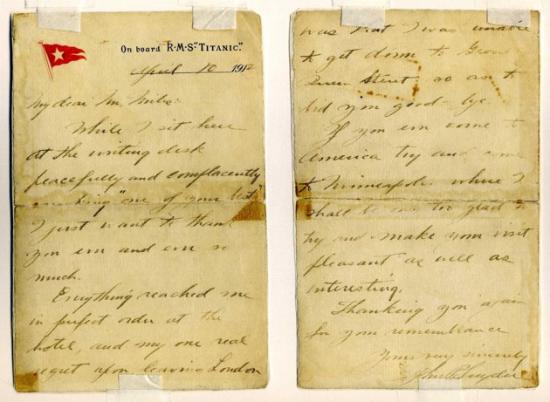 On board R·M·S·"TITANIC".
April 10 1912
My dear Mr.
While I sit here
at the writing desk
peacefully and complacently
"one of your best"
I just want to thank
you ever and ever so
much.
Everything reached me
in perfect order at the
hotel, and my one real
regret upon leaving London
was that I was unable
to get down to Grosvenor
Street so as to
bid you good-bye.
If you ever come to
America try and come
to Minneapolis where I
shall be only too glad to
try and make your visit
pleasant as well as
interesting.
Thanking you again
for your remembrance
Yours very sincerely
John Snyder